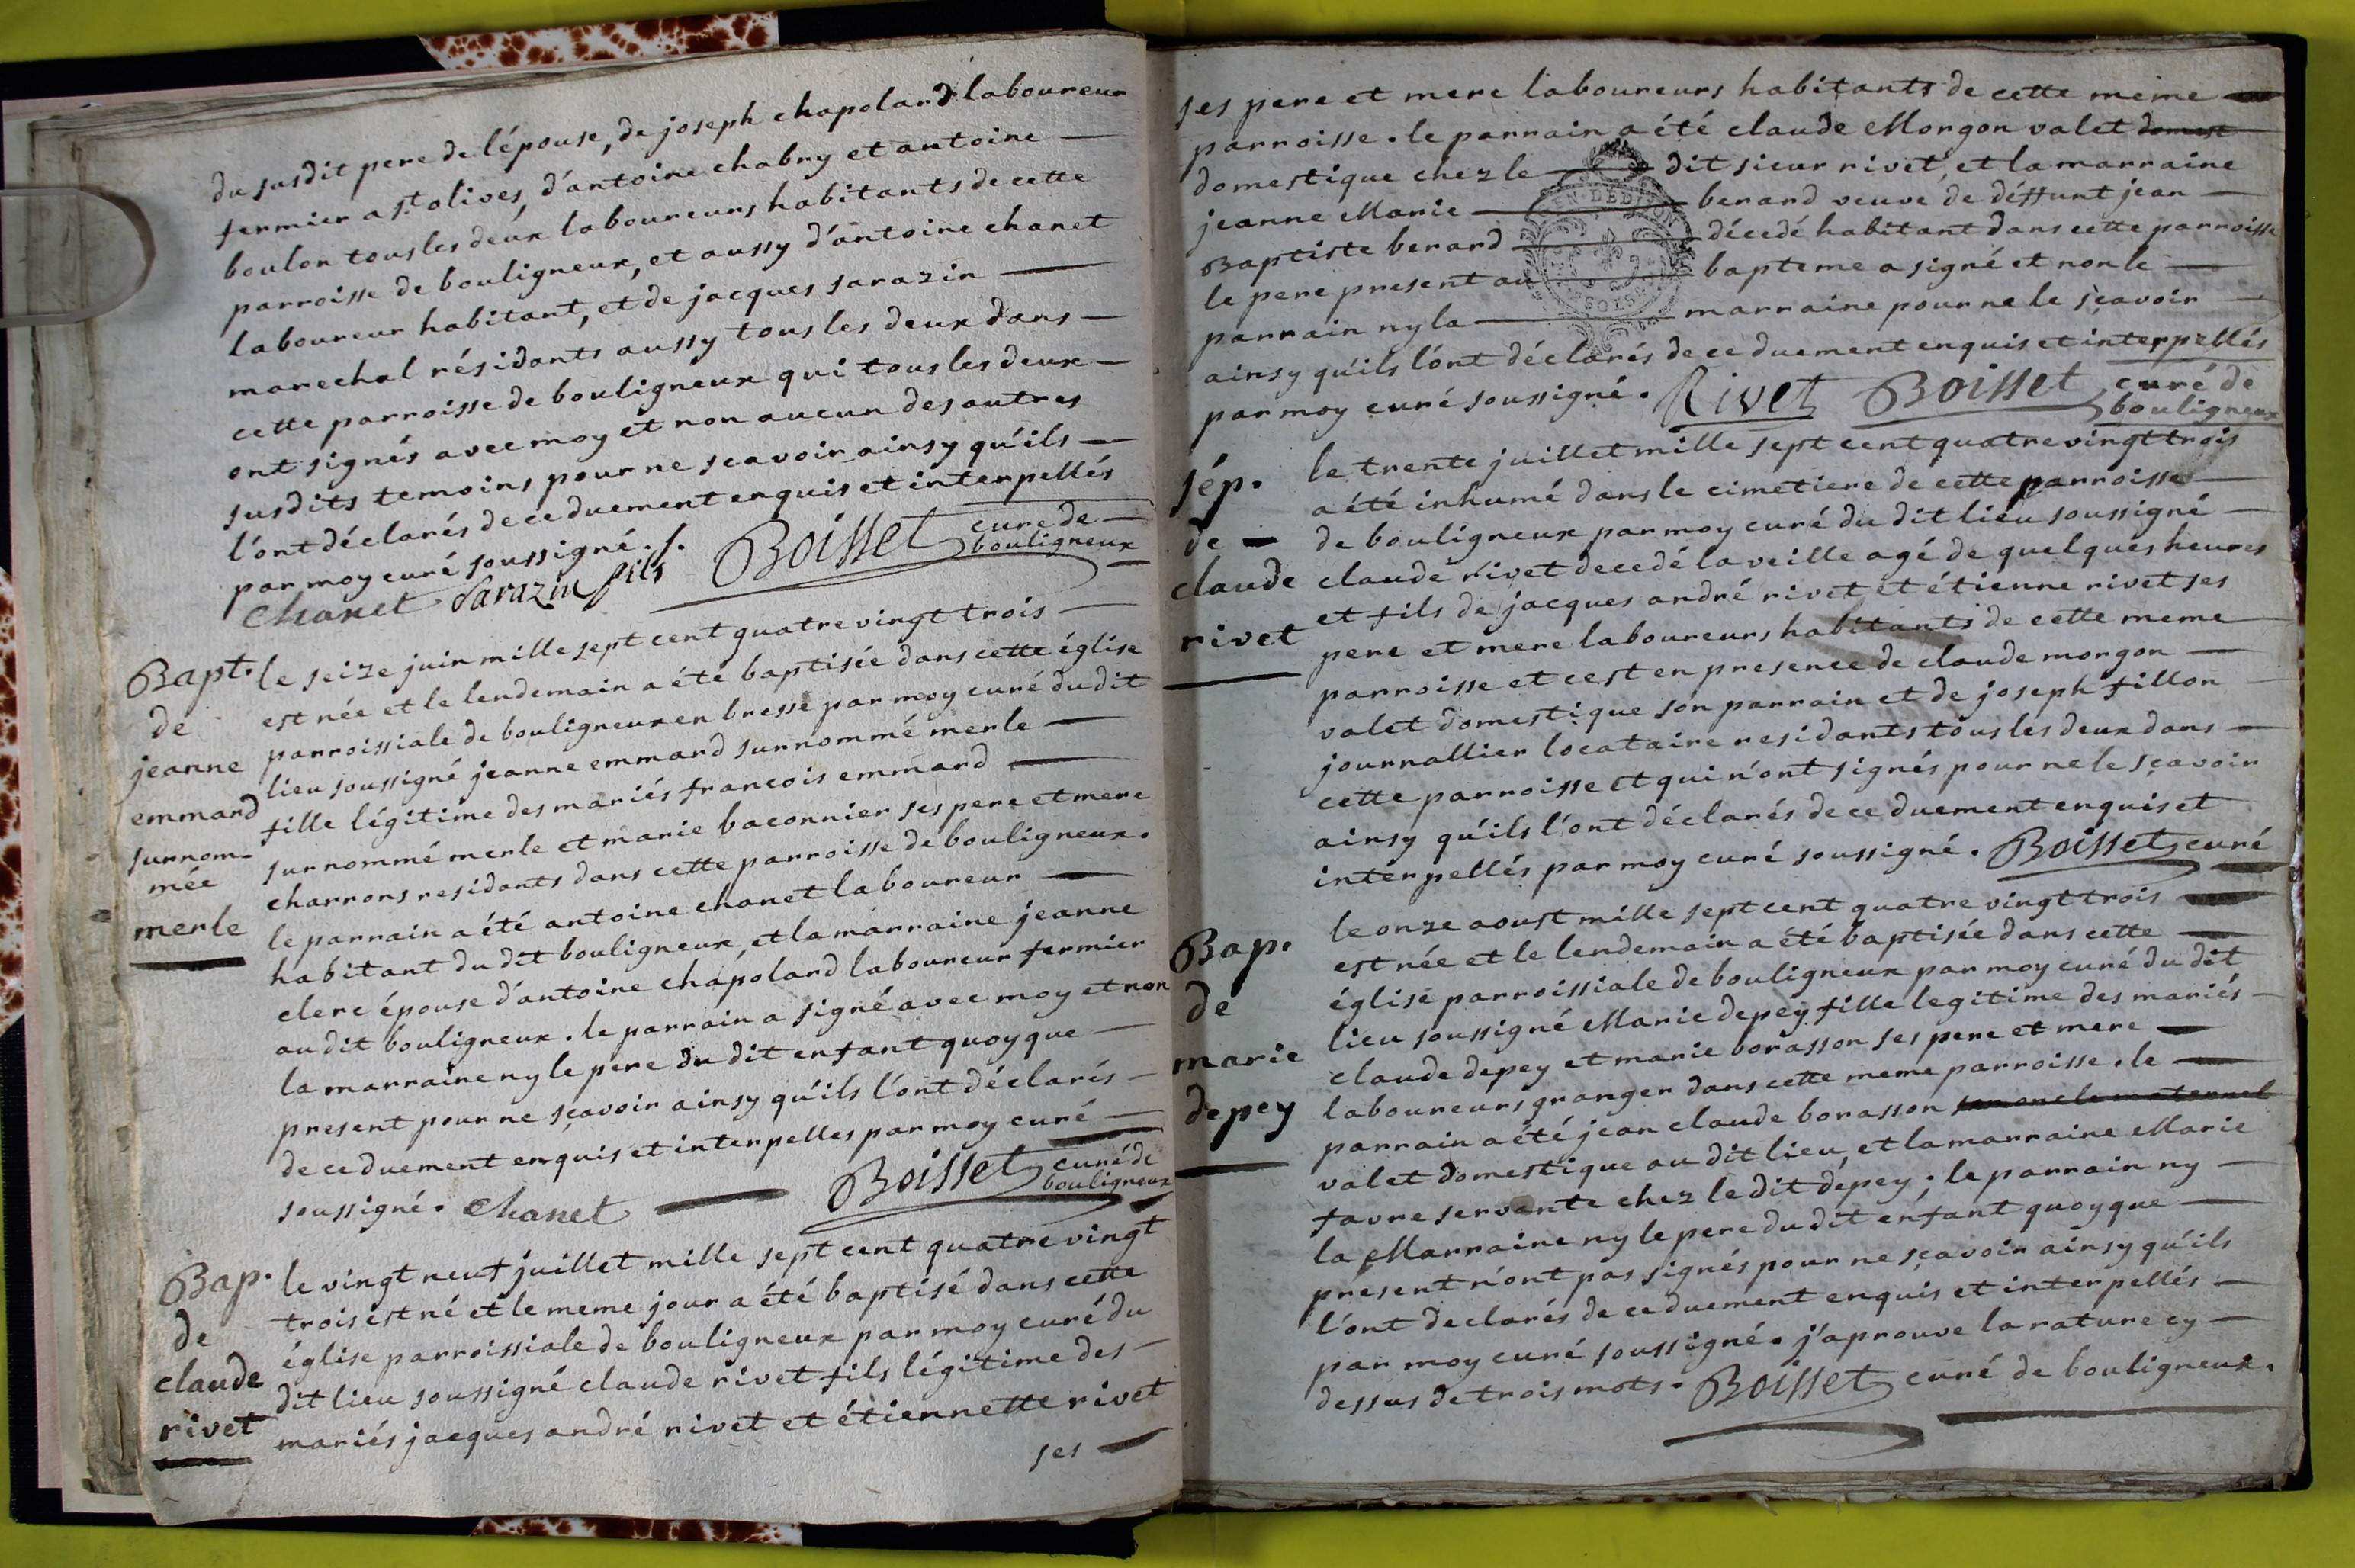 du susdit pere de l'épouse, de joseph chapolard laboureur
fermier a st olives, d'antoine chabry et antoine
boulon tous les deux laboureurs habitants de cette
parroisse de bouligneux, et aussy d'antoine chanet
laboureur habitant, et de jacques sarazin
marechal résidants aussy tous les deux dans
cette parroisse de bouligneux qui tous les deux
ont signés avec moy et non aucun des autres
susdits temoins pour ne scavoir ainsy qu'ils
l'ont déclarés de ce duement enquis et interpellés
par moy curé soussigné ./.
Chanet Sarazin fils Boisset curé de
bouligneux
Bapt.
de
jeanne
emmard
surnom-
mée
merle
le seize juin mille sept cent quatre vingt trois
est née et le lendemain a été baptisée dans cette église
parroissiale de bouligneux en bresse par moy curé du dit
lieu soussigné jeanne emmard surnommé merle
fille légitime des mariés francois emmard
surnommé merle et marie baconnier ses pere et mere
charrons residants dans cette parroisse de bouligneux.
le parrain a été antoine chanet laboureur
habitant du dit bouligneux, et la marraine jeanne
clerc épouse d'antoine chapolard laboureur fermier
au dit bouligneux. le parrain a signé avec moy et non
la marraine ny le pere du dit enfant quoyque
present pour ne sçavoir ainsy qu'ils l'ont déclarés
de ce duement enquis et interpelles par moy curé
soussigné. Chanet Boisset curé de
bouligneux
Bap.
de
claude
rivet
le vingt neuf juillet mille sept cent quatre vingt
trois est né et le meme jour a été baptisé dans cette
église parroissiale de bouligneux par moy curé du
dit lieu soussigné claude rivet fils légitime des
mariés jacques andré rivet et étiennette rivet
ses
ses pere et mere laboureurs habitants de cette meme
parroisse. le parrain a été claude Morgon valet domest
domestique chez le dit sieur rivet, et la marraine
jeanne Marie berard veuve de déffunt jean
Baptiste berard décedé habitant dans cette parroisse
le pere present au bapteme a signé et non le
parrain ny la marraine pour ne le sçavoir
ainsy qu'ils l'ont déclarés de ce duement enquis et interpellés
par moy curé soussigné. Rivet Boisset curé de
bouligneux
sép.
de
claude
rivet
le trente juillet mille sept cent quatre vingt trois
a été inhumé dans le cimetiere de cette parroisse
de bouligneux par moy curé du dit lieu soussigné
claude rivet decedé la veille agé de quelques heures
et fils de jacques andré rivet et étienne rivet ses
pere et mere laboureurs habitants de cette meme
parroisse et cest en presence de claude morgon
valet domestique son parrain et de joseph fillon
journallier locataire residants tous les deux dans
cette parroisse et qui n'ont signés pour ne le sçavoir
ainsy qu'ils l'ont déclarés de ce duement enquis et
interpellés par moy curé soussigné. Boisset curé
Bap.
de
marie
depey
le onze aoust mille sept cent quatre vingt trois
est née et le lendemain a été baptisée dans cette
église parroissiale de bouligneux par moy curé du dit
lieu soussigné Marie depey fille legitime des mariés
claude depey et marie borasson ses pere et mere
laboureurs granger dans cette meme parroisse. le
parrain a été jean claude borasson son oncle maternel
valet domestique au dit lieu, et la marraine Marie
favre servante chez le dit depey; le parrain ny
la Marraine ny le pere du dit enfant quoyque
présent n'ont pas signés pour ne sçavoir ainsy qu'ils
l'ont declarés de ce duement enquis et interpellés
par moy curé soussigné. j'aprouve la rature cy
dessus de trois mots. Boisset curé de bouligneux.